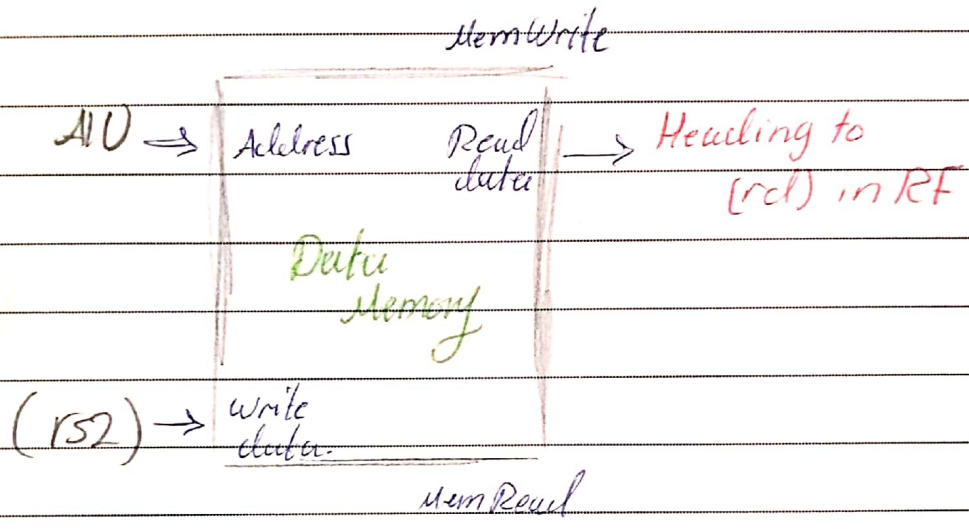 MemWrite
ALU ⇒ Address Read data → Heading to
(rd) in RF
Data
Memory
(rs2) → write
data.
MemRead